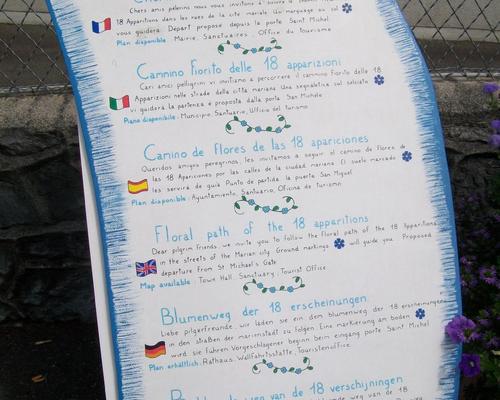 Chers amis pelerins nous vous invitons à suivre le
18 Apparitions dans les rues de la cité mariale Un marquage au sol
vous guidera. Départ proposé depuis la porte Saint Michel
Plan disponible Mairie, Sanctuaires, Office du Tourisme
Cammino Fiorito delle 18 apparizioni
Cari amici pellegrini vi invitiamo a percorrere il cammino Fiorito delle 18
Apparizioni nelle strade della città mariana Una segnaletica sul selciato
vi guiderà la partenza è proposta dalla porta San Michele
Piano disponibile: Municipio, Santuario, Ufficio del turismo
Camino de Flores de las 18 apariciones
Queridos amigos peregrinos, les invitamos a seguir el camino de Flores de
las 18 Apariciones por las calles de la ciudad mariana El suelo marcado
les servirá de guía Punto de partida la puerta San Miguel
Plan disponible: Ayuntamiento, Santuario, Oficina de turismo
Floral path of the 18 apparitions
Dear pilgrim friends, we invite you to follow the floral path of the 18 Apparitions
in the streets of the Marian city Ground markings will guide you Proposed
departure from St Michael's Gate
Map available Town Hall, Sanctuary, Tourist Office
Blumenweg der 18 erscheinungen
Liebe pilgerfreunde, wir laden sie ein dem blumenweg der 18 erscheinungen
in den straßen der marienstadt zu folgen Eine markierung am boden
wird sie führen Vorgeschlagener beginn beim eingang porte Saint Michel
Plan erhältlich: Rathaus, Wallfahrtsstätte, Touristenoffice
van de 18 verschijningen